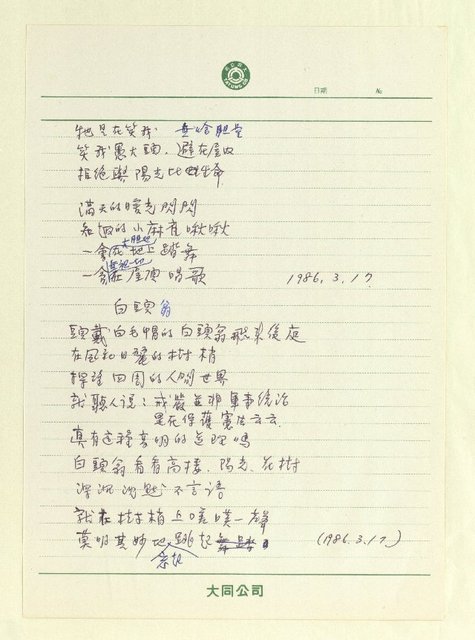 日期 №
牠是在笑我
笑我愚大頭,避在屋內
拒絕與陽光比生命
滿天的暖光閃閃
知泗的小麻雀啾啾
一會在地上踏舞
一會在屋頂唱歌 1986.3.17
白頭翁
頭戴白毛帽的白頭翁飛來後庭
在風和日麗的樹梢
探望四周的人間世界
就聽人說:戒嚴並非軍事統治
是在保護憲法云云
真有這種高明的道理嗎
白頭翁看看高樓、陽光、花樹
深沉的默不言語
就在樹梢上嗤噗一聲
莫明其妙地跳起 (1986.3.17.)
大同公司